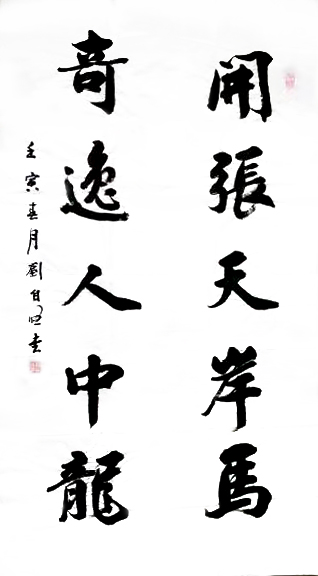 開張天岸馬
奇逸人中龍
壬寅春月劉自